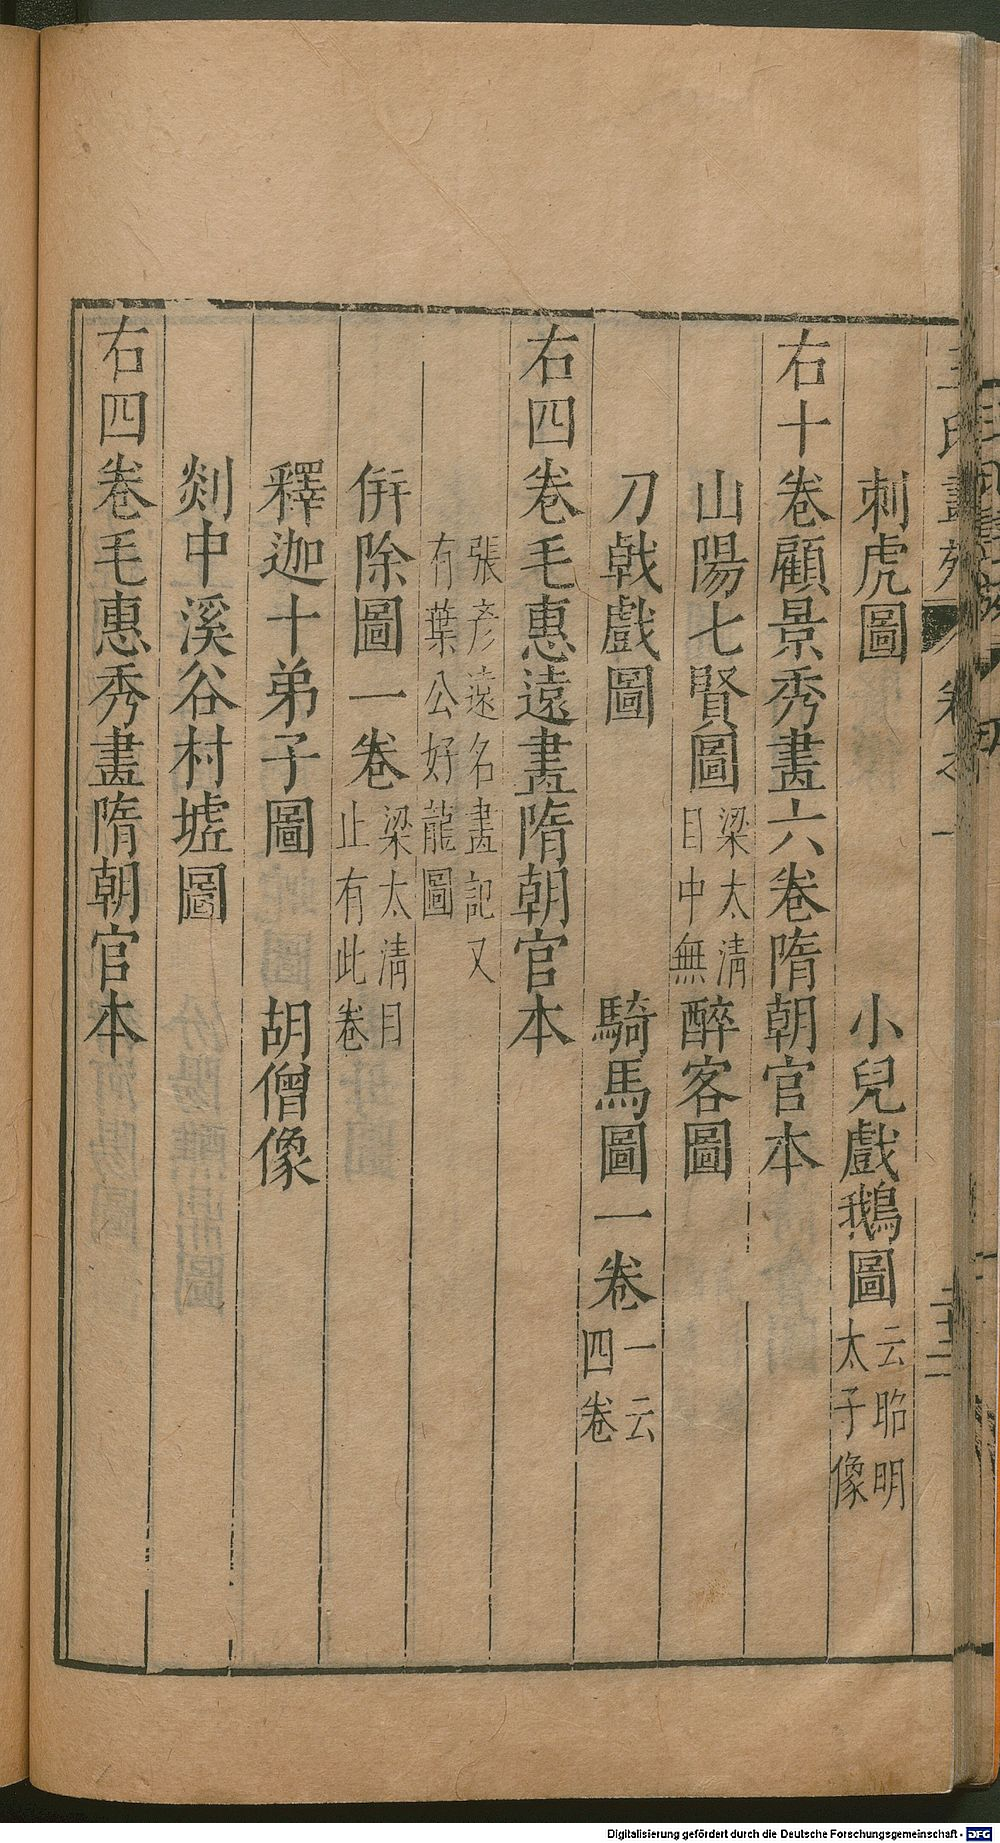 王氏畫苑　卷之一　二十二
刺虎圖　小兒戲鵝圖云昭明太子像
右十卷顧景秀畫六卷隋朝官本
山陽七賢圖梁太清目中無　醉客圖
刀戟戲圖　騎馬圖一卷一云四卷
右四卷毛惠遠畫隋朝官本
張彥遠名畫記又有葉公好龍圖
併除圖一卷梁太清目止有此卷
釋迦十弟子圖　胡僧像
剡中溪谷村墟圖
右四卷毛惠秀畫隋朝官本
Digitalisierung gefördert durch die Deutsche Forschungsgemeinschaft - DFG